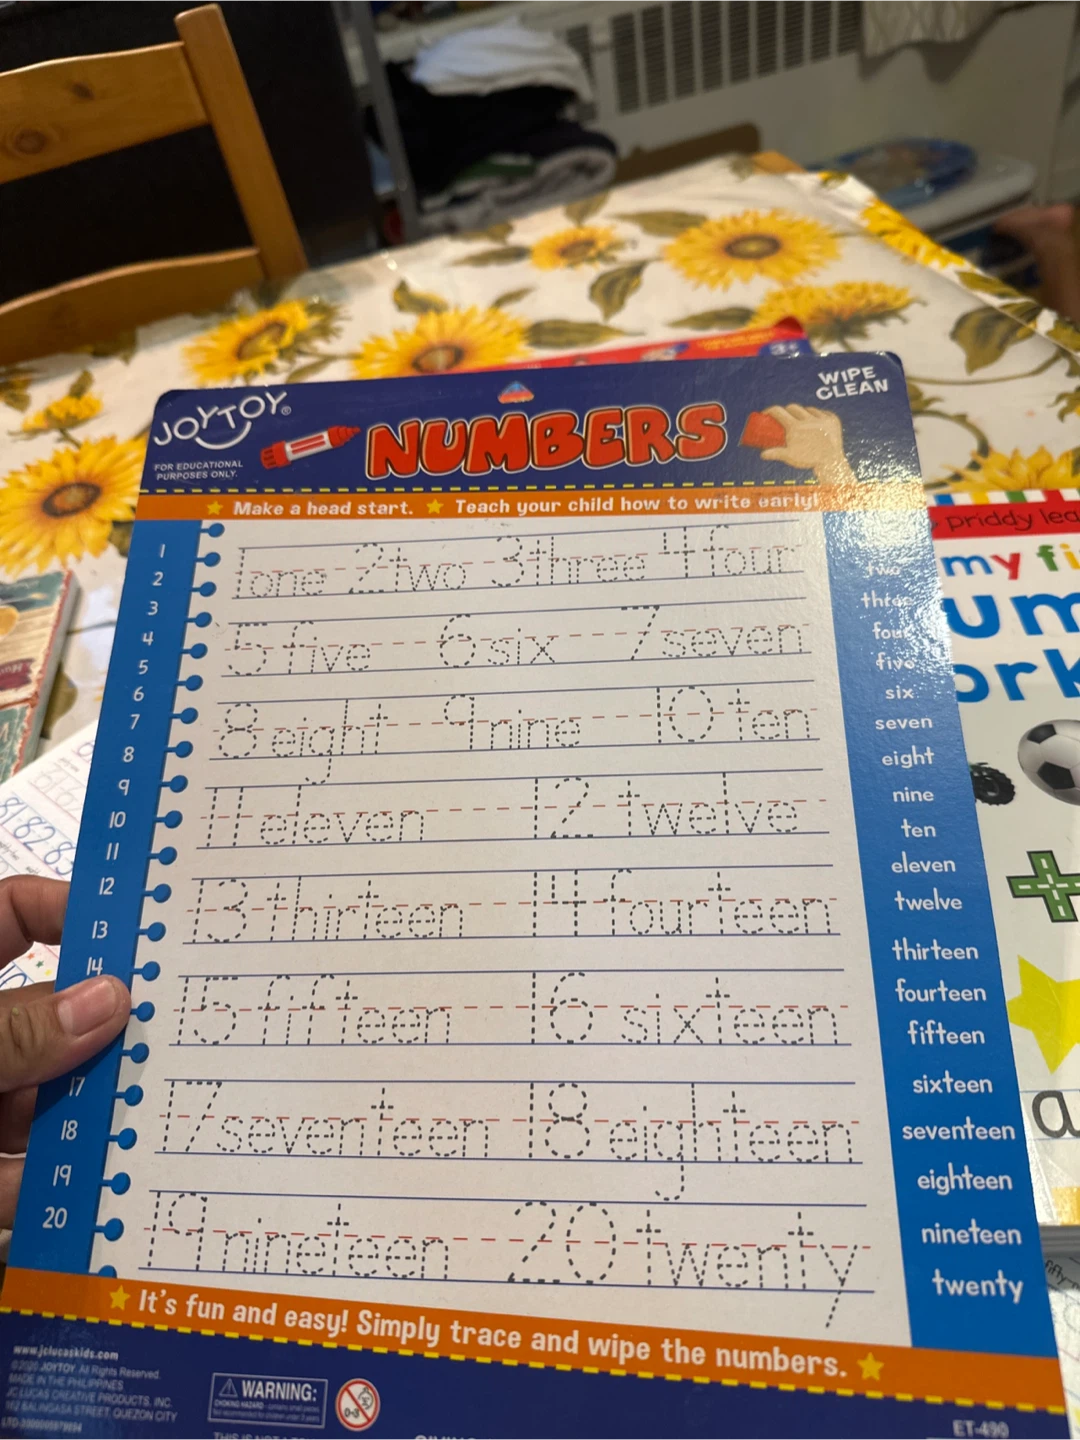 WIPE
CLEAN
JOYTOY®
NUMBERS
FOR EDUCATIONAL
PURPOSES ONLY.
Make a head start. Teach your child how to write early!
1
2
3
4
5
6
7
8
9
10
11
12
13
14
17
18
19
20
1 one 2 two 3 three 4 four
5 five 6 six 7 seven
8 eight 9 nine 10 ten
11 eleven 12 twelve
13 thirteen 14 fourteen
15 fifteen 16 sixteen
17 seventeen 18 eighteen
19 nineteen 20 twenty
two
three
four
five
six
seven
eight
nine
ten
eleven
twelve
thirteen
fourteen
fifteen
sixteen
seventeen
eighteen
nineteen
twenty
It's fun and easy! Simply trace and wipe the numbers.
www.jclucaskids.com
©2020 JOYTOY. All Rights Reserved.
MADE IN THE PHILIPPINES
JC LUCAS CREATIVE PRODUCTS, INC.
162 BALINGASA STREET, QUEZON CITY
WARNING:
CHOKING HAZARD
0-3
ET-490
3+
priddy lea
my fi
um
ork
a
81 82 83